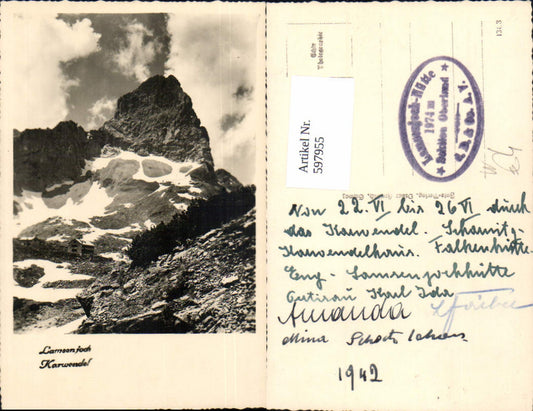 Lamsenjoch
Karwendel
Artikel Nr.
597955
Echte
Photographie
Lamsenjoch-Hütte
1974 m
Sektion Oberland
1343
Von 22. VI bis 26 VI durch
das Karwendel. Scharnitz-
Karwendelhaus. Falkenhütte
Eng - Lamsenjochhütte
Karl Ida
Amanda
Mina
1942